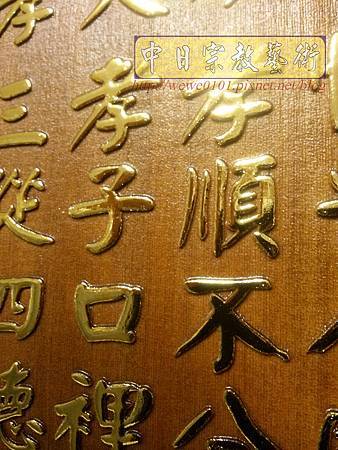 中日宗教藝術
http://wewe0101.pixnet.net/blog
孝順不公
孝子口裡
孝三從四德